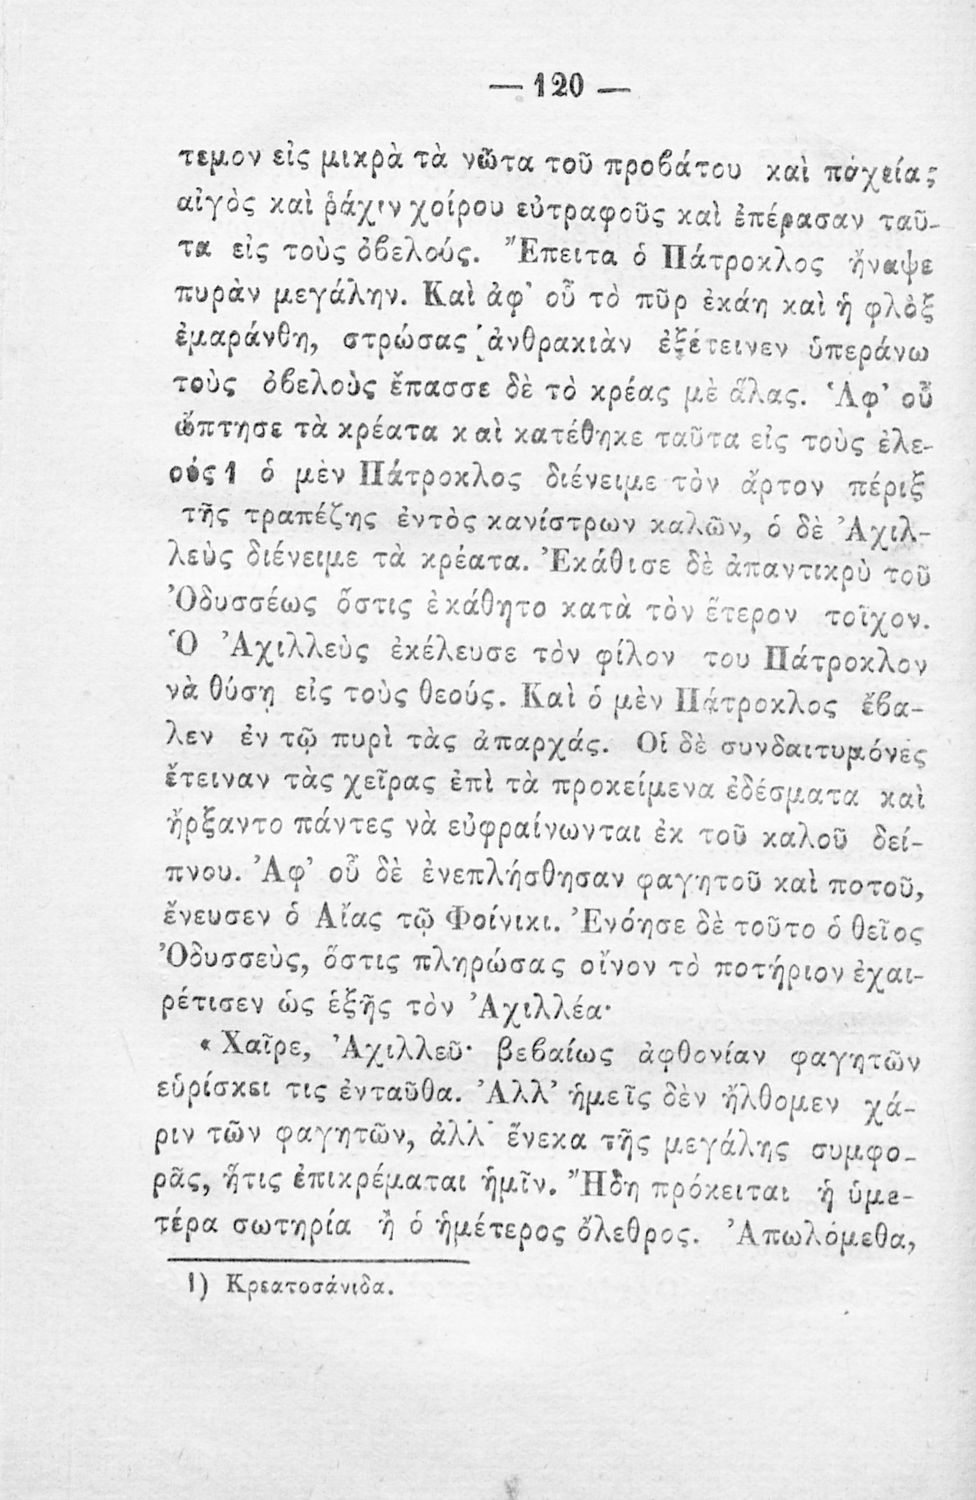 — 120 —
τεμον εἰς μικρὰ τὰ νῶτα τοῦ προβάτου καὶ παχείας
αἰγὸς καὶ ῥάχιν χοίρου εὐτραφοῦς καὶ ἐπέρασαν ταῦ-
τα εἰς τοὺς ὀβελούς. Ἔπειτα ὁ Πάτροκλος ἤναψε
πυρὰν μεγάλην. Καὶ ἀφ' οὗ τὸ πῦρ ἐκάη καὶ ἡ φλὸξ
ἐμαράνθη, στρώσας ἀνθρακιὰν ἐξέτεινεν ὑπεράνω
τοὺς ὀβελοὺς ἔπασσε δὲ τὸ κρέας μὲ ἅλας. Ἀφ' οὗ
ὤπτησε τὰ κρέατα καὶ κατέθηκε ταῦτα εἰς τοὺς ἐλε-
οὺς 1 ὁ μὲν Πάτροκλος διένειμε τὸν ἄρτον πέριξ
τῆς τραπέζης ἐντὸς κανίστρων καλῶν, ὁ δὲ Ἀχιλ-
λεὺς διένειμε τὰ κρέατα. Ἐκάθισε δὲ ἀπαντικρὺ τοῦ
Ὀδυσσέως ὅστις ἐκάθητο κατὰ τὸν ἕτερον τοῖχον.
Ὁ Ἀχιλλεὺς ἐκέλευσε τὸν φίλον του Πάτροκλον
νὰ θύσῃ εἰς τοὺς θεούς. Καὶ ὁ μὲν Πάτροκλος ἔβα-
λεν ἐν τῷ πυρὶ τὰς ἀπαρχάς. Οἱ δὲ συνδαιτυμόνες
ἔτειναν τὰς χεῖρας ἐπὶ τὰ προκείμενα ἐδέσματα καὶ
ἤρξαντο πάντες νὰ εὐφραίνωνται ἐκ τοῦ καλοῦ δεί-
πνου. Ἀφ' οὗ δὲ ἐνεπλήσθησαν φαγητοῦ καὶ ποτοῦ,
ἔνευσεν ὁ Αἴας τῷ Φοίνικι. Ἐνόησε δὲ τοῦτο ὁ θεῖος
Ὀδυσσεὺς, ὅστις πληρώσας οἴνον τὸ ποτήριον ἐχαι-
ρέτισεν ὡς ἑξῆς τὸν Ἀχιλλέα·
« Χαῖρε, Ἀχιλλεῦ· βεβαίως ἀφθονίαν φαγητῶν
εὑρίσκει τις ἐνταῦθα. Ἀλλ' ἡμεῖς δὲν ἤλθομεν χά-
ριν τῶν φαγητῶν, ἀλλ' ἕνεκα τῆς μεγάλης συμφο-
ρᾶς, ἥτις ἐπικρέμαται ἡμῖν. Ἤδη πρόκειται ἡ ὑμε-
τέρα σωτηρία ἢ ὁ ἡμέτερος ὄλεθρος. Ἀπωλόμεθα,
1) Κρεατοσάνιδα.